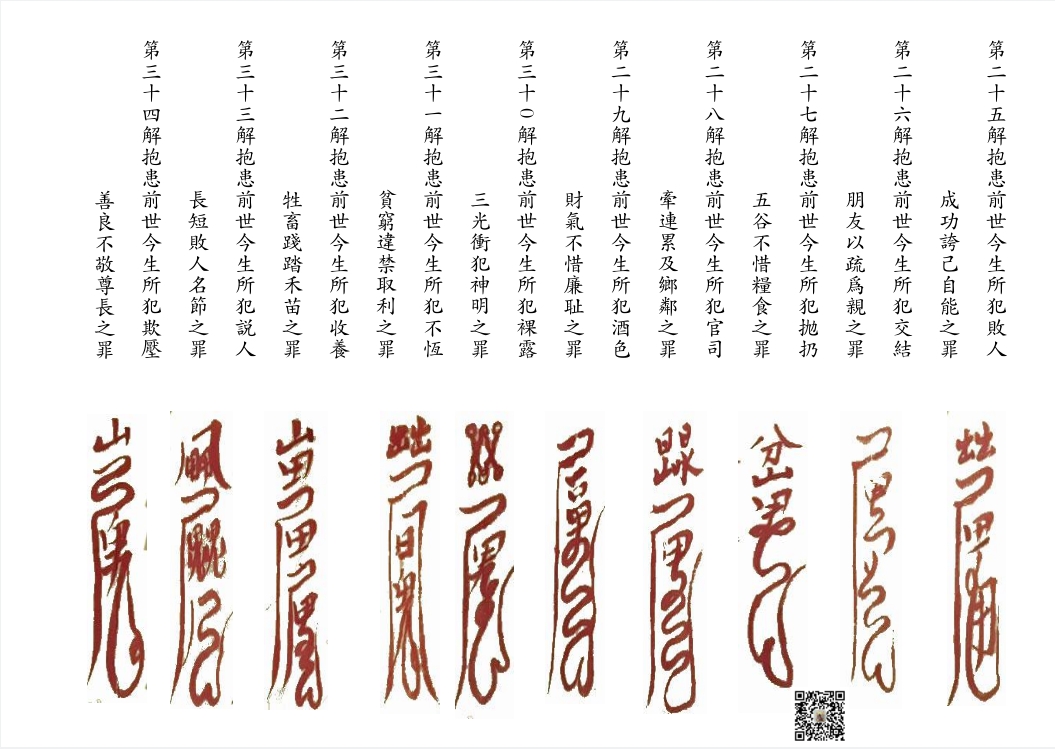 第二十五解抱患前世今生所犯敗人
成功誇己自能之罪
第二十六解抱患前世今生所犯交結
朋友以疏爲親之罪
第二十七解抱患前世今生所犯拋扔
五谷不惜糧食之罪
第二十八解抱患前世今生所犯官司
牽連累及鄉鄰之罪
第二十九解抱患前世今生所犯酒色
財氣不惜廉耻之罪
第三十0解抱患前世今生所犯裸露
三光衝犯神明之罪
第三十一解抱患前世今生所犯不恆
貧窮違禁取利之罪
第三十二解抱患前世今生所犯收養
牲畜踐踏禾苗之罪
第三十三解抱患前世今生所犯説人
長短敗人名節之罪
第三十四解抱患前世今生所犯欺壓
善良不敬尊長之罪